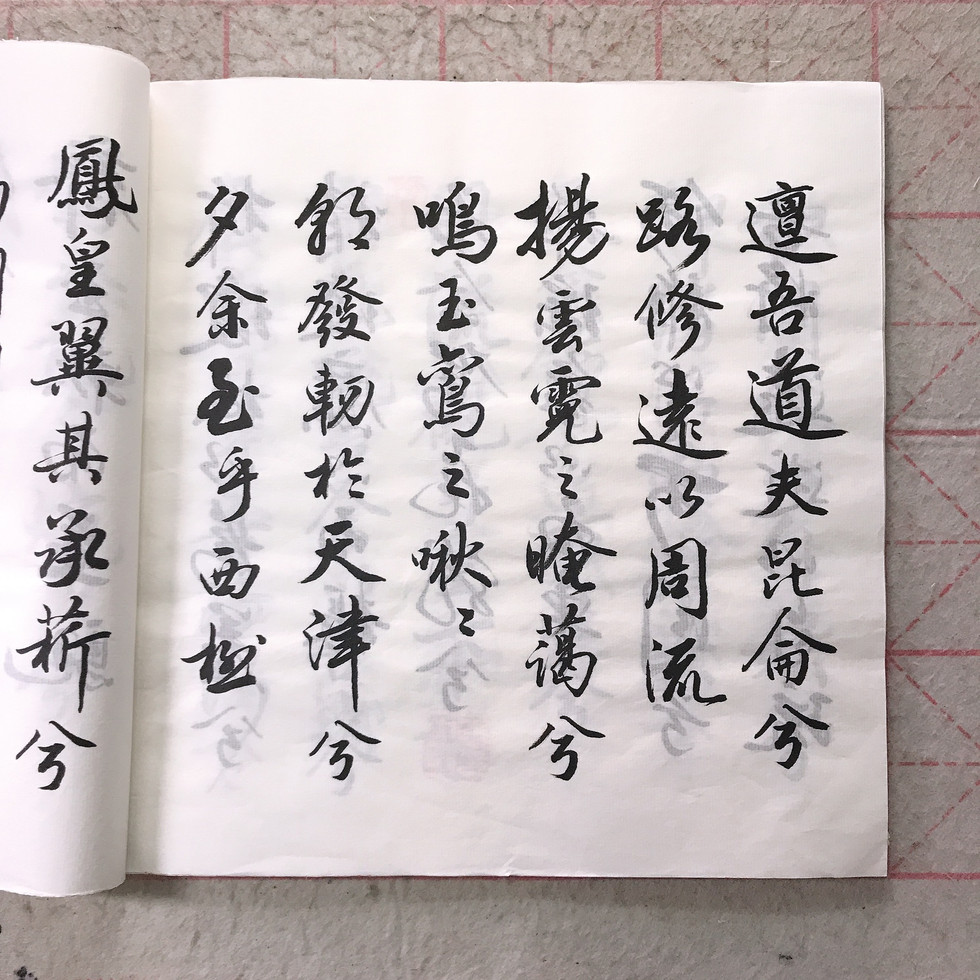 邅吾道夫昆侖兮
路修遠以周流
揚雲霓之晻藹兮
鳴玉鸞之啾〻
朝發軔於天津兮
夕余至乎西極
鳳皇翼其承旂兮